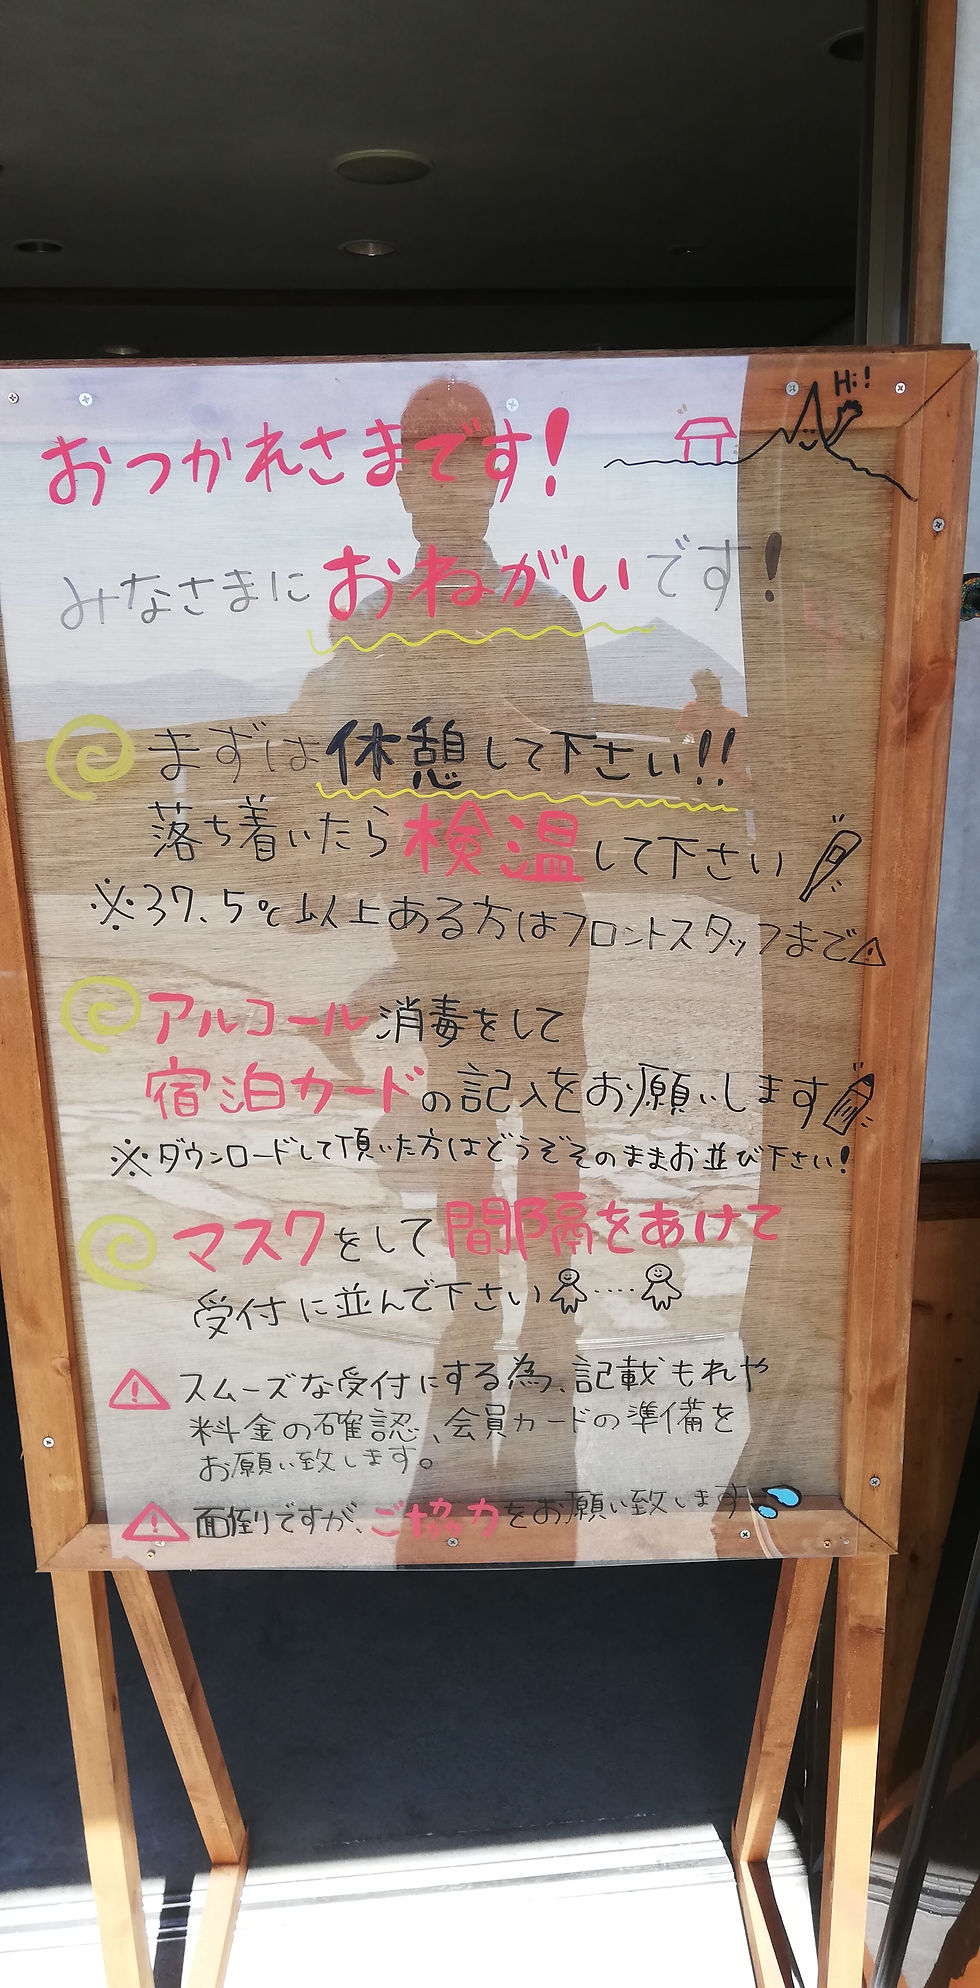 Hi!
おつかれさまです!
みなさまにおねがいです!
まずは休憩して下さい!!
落ち着いたら検温して下さい
※37.5℃以上ある方はフロントスタッフまで
アルコール消毒をして
宿泊カードの記入をお願いします
※ダウンロードして頂いた方はどうぞそのままお並び下さい!
マスクをして間隔をあけて
受付に並んで下さい
スムーズな受付にする為、記載もれや
料金の確認、会員カードの準備を
お願い致します。
面倒ですが、ご協力をお願い致します